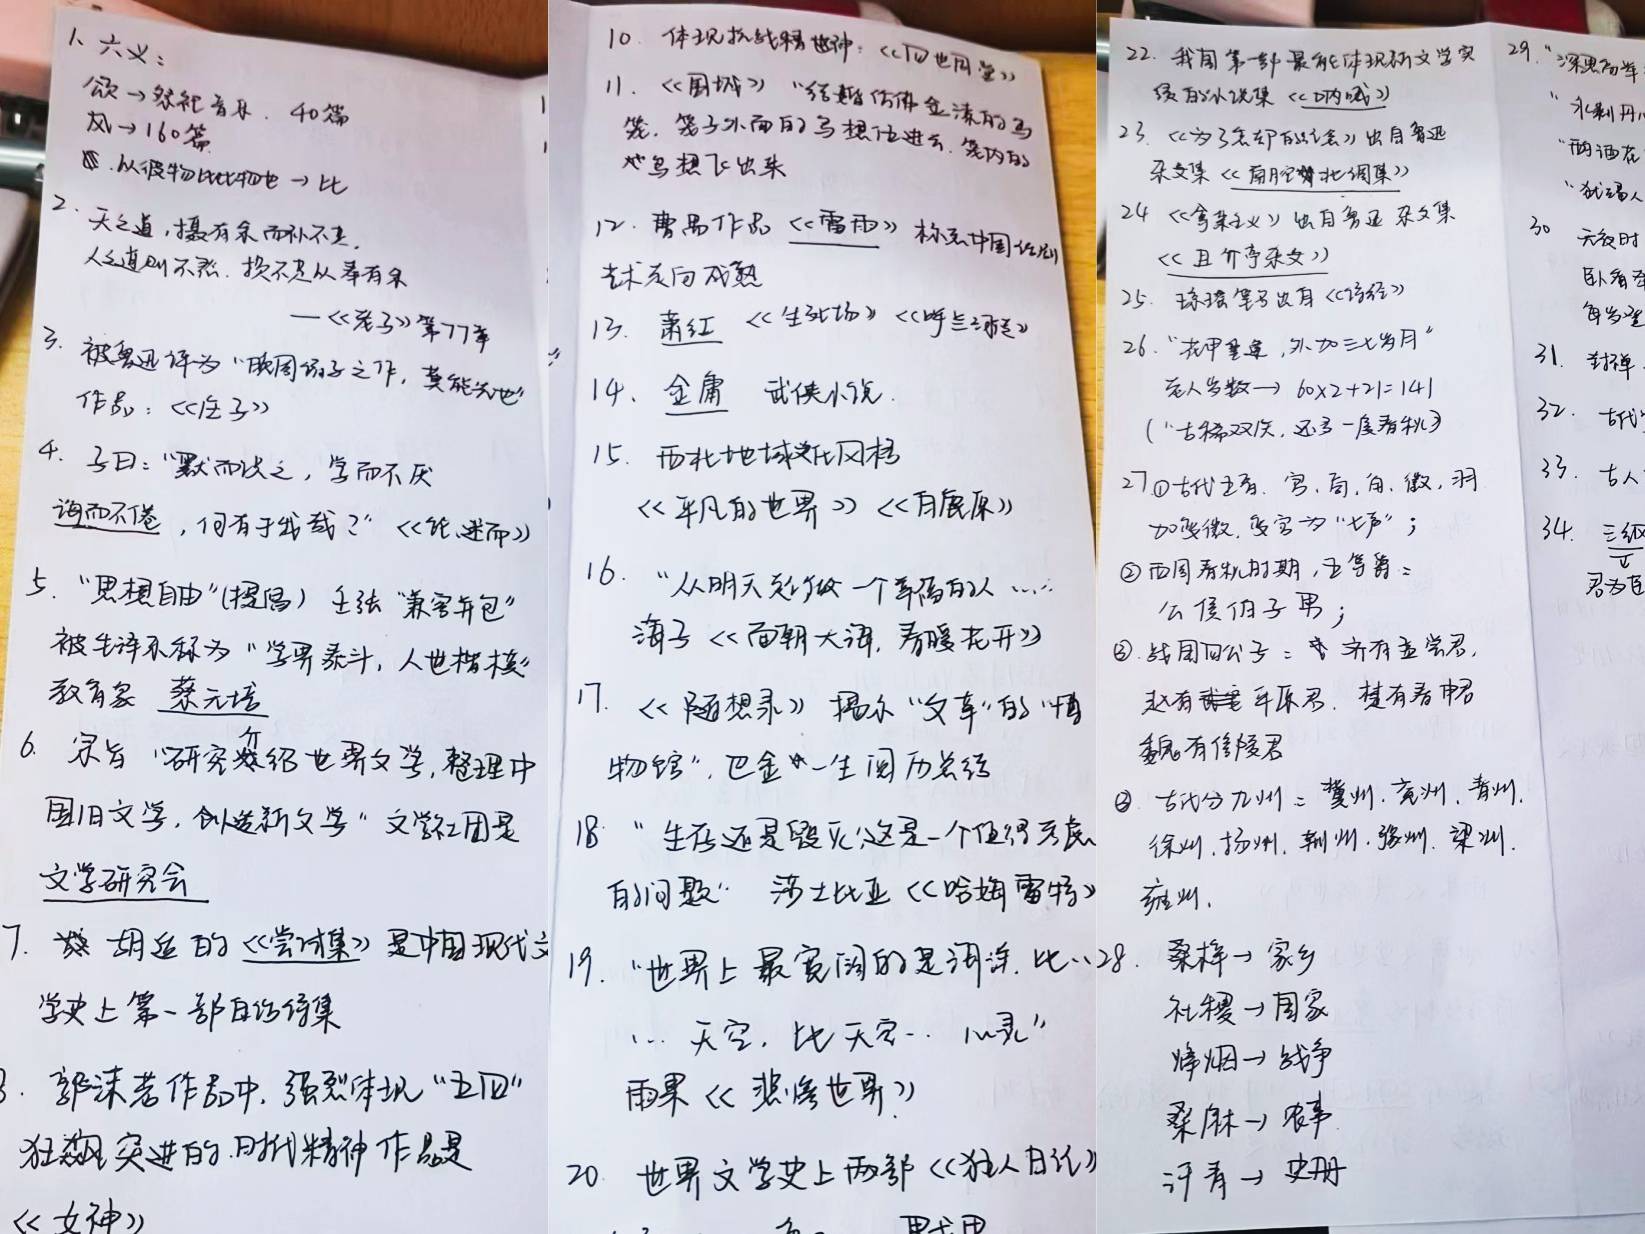 1、六义：
颂→祭祀音乐．40篇
风→160篇
以彼物比此物也→比
2. 天之道,损有余而补不足,
人之道则不然．损不足以奉有余
—《老子》第77章
3. 被鲁迅评为“晚周诸子之作,莫能先也”
作品：《庄子》
4. 子曰：“默而识之，学而不厌
诲而不倦，何有于我哉？”《论.述而》
5. “思想自由”(提倡）主张“兼容并包”
被毛泽东称为“学界泰斗,人世楷模”
教育家 蔡元培
6. 宗旨“研究介绍世界文学,整理中
国旧文学,创造新文学”文学社团是
文学研究会
7. 胡适的《尝试集》是中国现代文
学史上第一部白话诗集
8. 郭沫若作品中,强烈体现“五四”
狂飙突进的时代精神作品是
《女神》
10. 体现抗战精神：《四世同堂》
11. 《围城》“结婚仿佛金漆的鸟
笼,笼子外面的鸟想住进去,笼内的
鸟想飞出来
12. 曹禺作品《雷雨》标志中国话剧
艺术走向成熟
13. 萧红《生死场》《呼兰河传》
14. 金庸 武侠小说.
15. 西北地域文化风格
《平凡的世界》《白鹿原》
16. “从明天起做一个幸福的人……
海子《面朝大海,春暖花开》
17. 《随想录》揭示“文革”的“博
物馆”,巴金一生阅历总结
18 “生存还是毁灭,这是一个值得考虑
的问题”莎士比亚《哈姆雷特》
19. “世界上最宽阔的是海洋,比…
…天空,比天空…心灵”
雨果《悲惨世界》
20. 世界文学史上两部《狂人日记》
22. 我国第一部最能体现新文学实
绩的小说集《呐喊》
23. 《为了忘却的记念》出自鲁迅
杂文集《南腔北调集》
24 《拿来主义》出自鲁迅杂文集
《且介亭杂文》
25. 琼瑶笔名出自《诗经》
26. “花甲重逢,外加三七岁月”
老人岁数→60x2+21=141
(“古稀双庆,还多一度春秋)
27.①古代五音．宫,商,角,徵,羽
加变徵,变宫为“七声”；
②西周春秋时期,五等爵：
公侯伯子男；
③.战国四公子：齐有孟尝君,
赵有平原君．楚有春申君
魏有信陵君
③.古代分九州：冀州.兖州.青州.
徐州.扬州.荆州.豫州.梁州.
雍州.
28. 桑梓→家乡
社稷→国家
烽烟→战争
桑麻→农事
汗青→史册
29.“深思高举
“永
“两洒花
“犹
30 天
卧看牵
31. 封禅
32. 古代
33. 古人
34. 三纲
君为臣